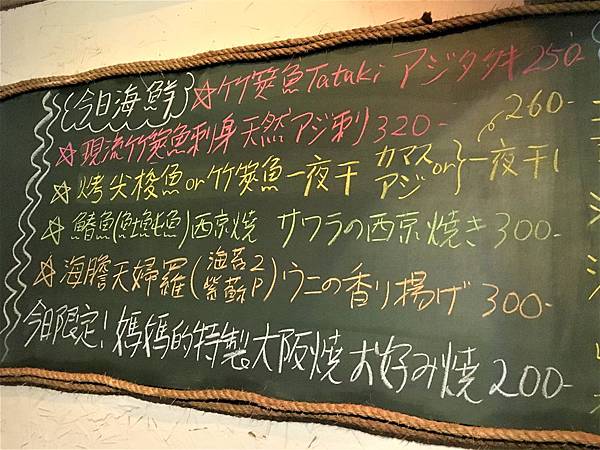 今日海鮮 ☆竹筴魚Tataki アジタタキ250-
☆現流竹筴魚刺身 天然アジ刺320-
260-
☆烤尖梭魚or竹筴魚一夜干 カマスorアジ}一夜干し
☆鰆魚(魠魠魚)西京燒 サワラの西京焼き300-
☆海膽天婦羅(海苔2 紫蘇P)ウニの香り揚げ300-
今日限定!媽媽的特製大阪燒 お好み焼200-